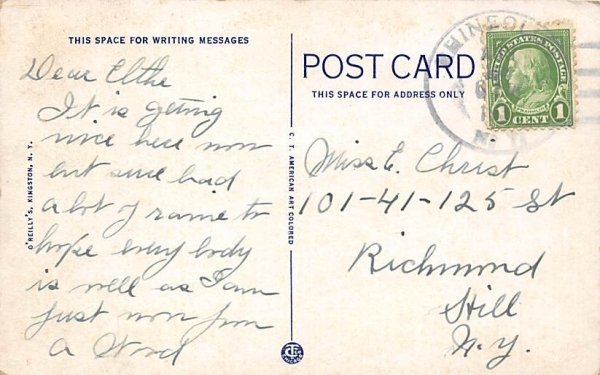 THIS SPACE FOR WRITING MESSAGES
Dear Elthe
It is getting
nice here now
but sure had
a lot of raine to
hope every body
is well as I am
just now from
a Word
O'REILLY'S, KINGSTON, N. Y.
C. T. AMERICAN ART COLORED
POST CARD
THIS SPACE FOR ADDRESS ONLY
UNITED STATES POSTAGE
1 CENT 1
Miss E. Christ
101-41-125 St
Richmond
Hill
N.Y.